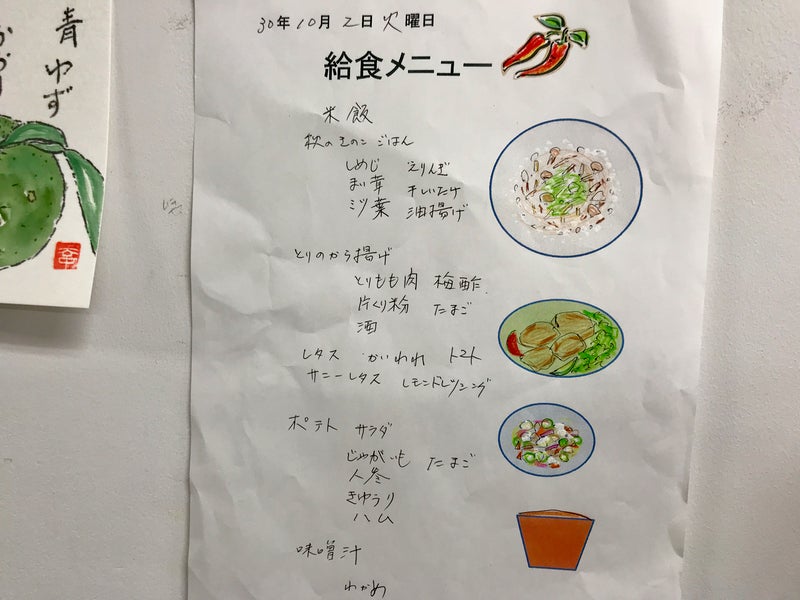 青ゆず
30年10月2日火曜日
給食メニュー
米飯
秋のきのこごはん
しめじ えりんぎ
まい茸 干しいたけ
ミツ葉 油揚げ
とりのから揚げ
とりもも肉 梅酢
片くり粉 たまご
酒
レタス かいわれ トマト
サニーレタス レモンドレッシング
ポテトサラダ
じゃがいも たまご
人参
きゅうり
ハム
味噌汁
わかめ